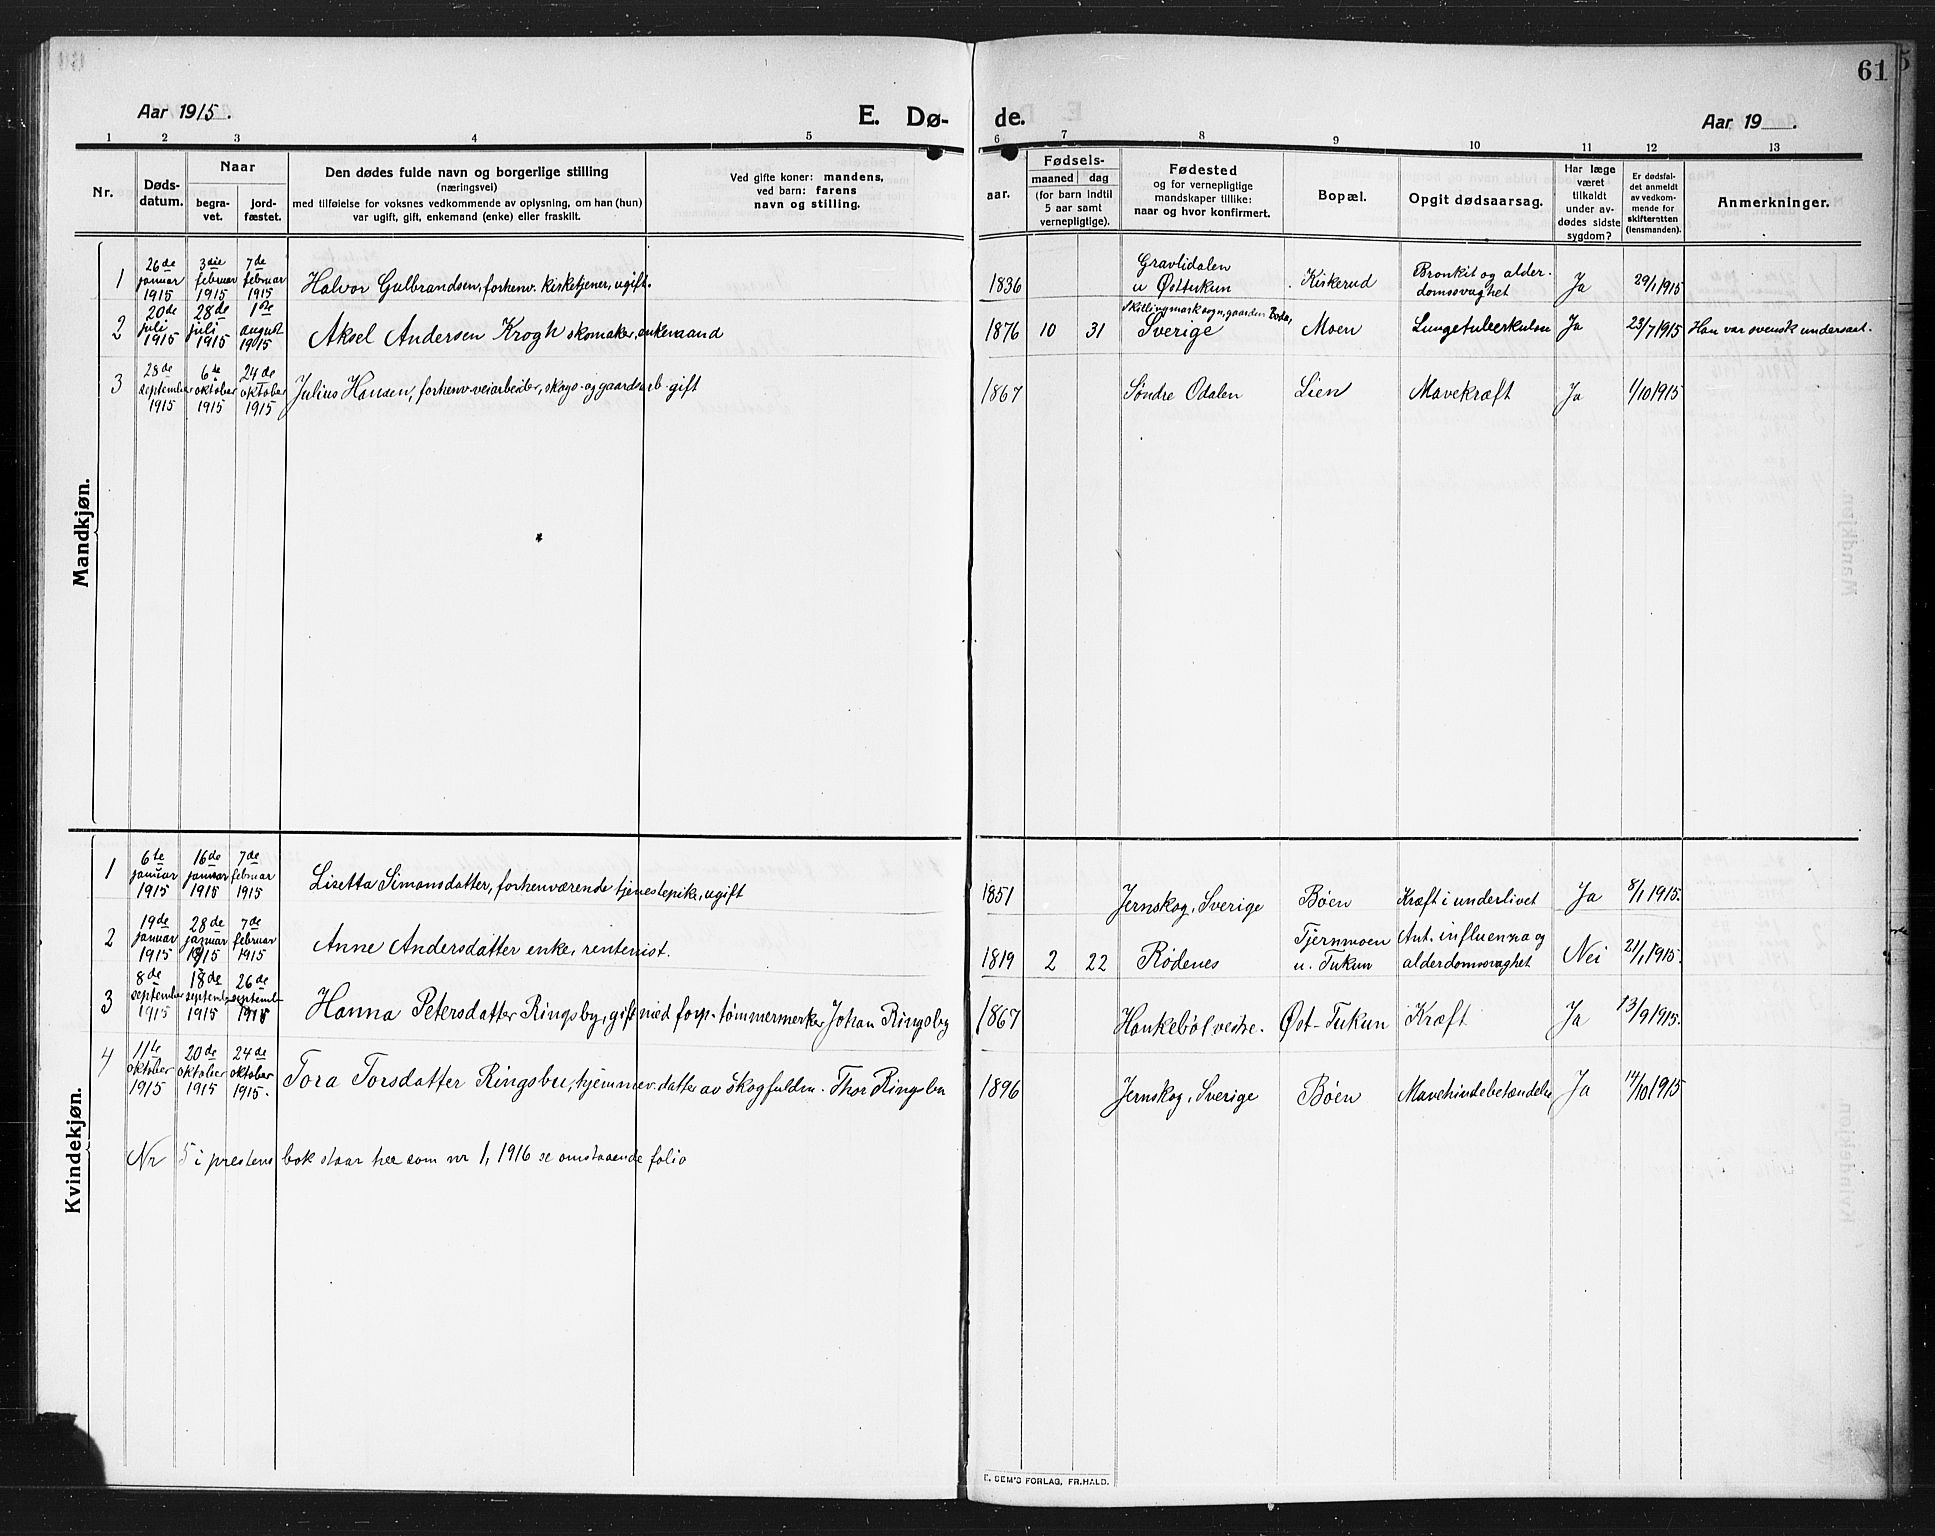 61
Aar 1915.
E. Dø- de.
Aar 19 .
1 2 3 4 5 6 7 8 9 10 11 12 13
Nr.
Døds-
datum.
Naar
begra-
vet.
jord-
fæstet.
Den dødes fulde navn og borgerlige stilling
(næringsvei)
med tilføielse for voksnes vedkommende av oplysning, om han (hun)
var ugift, gift, enkemand (enke) eller fraskilt.
Ved gifte koner: mandens,
ved barn: farens
navn og stilling.
Fødsels-
aar.
maaned dag
(for barn indtil
5 aar samt
vernepligtige).
Fødested
og for vernepligtige
mandskaper tillike:
naar og hvor konfirmert.
Bopæl.
Opgit dødsaarsag.
Har læge
været
tilkaldt
under av-
dødes sidste
sygdom?
Er dødsfal-
det anmeldt
av vedkom-
mende for
skifteretten
(lensmanden).
Anmerkninger.
Mandkjøn.
1 26de januar 1915 3die februar 1915 7de februar 1915 Halvor Gulbrandsen, forhenv. kirketjener, ugift. 1836 Gravlidalen u Øst Tukun Kiskerud Bronkit og alder-domssvaghet Ja 29/1 1915
2 20de juli 1915 28de juli 1915 1ste august 1915 Aksel Andersen Krogh skomaker, enkemand 1876 10 31 Skillingmark sogn, gaarden Boda, Sverige Moen Lungetuberkulose Ja 23/7 1915 Han var svensk undersaat.
3 28de september 1915 6te oktober 1915 24de oktober 1915 Julius Hansen, forhenv. veiarbeider, skogs- og gaardsarb. gift 1867 Søndre Odalen Lien Mavekræft Ja 1/10 1915
Kvindekjøn.
1 6te januar 1915 16de januar 1915 7de februar 1915 Lisetta Simonsdatter, forhenværende tjenestepike, ugift 1851 Jernskog, Sverige Bøen Kræft i underlivet Ja 8/1 1915.
2 19de januar 1915 28de januar 1915 7de februar 1915 Anne Andersdatter enke, rentenist. 1819 2 22 Rødenes Tjernmoen u. Tukun Ant. influenza og alderdomssvaghet Nei 21/1 1915.
3 8de september 1915 18de septemb. 1915 26de septemb. 1915 Hanna Petersdatter Ringsby, gift med forp. tømmermerker Johan Ringsby 1867 Hankebøl vestre. Øst-Tukun Kræft Ja 13/9 1915.
4 11te oktober 1915 20de oktober 1915 24de oktober 1915. Tora Torsdatter Ringsby, hjemmev. datter av skogfuldm. Thor Ringsby 1896 Jernskog, Sverige Bøen Mavehindebetændelse Ja 14/10 1915
Nr 5 i prestens bok staar her som nr 1, 1916 se omstaaende folio
E. SEM'S FORLAG, FR.HALD.